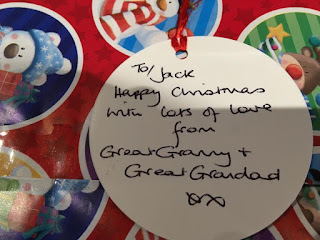 To/Jack
Happy Christmas
with lots of love
from
Great Granny +
Great Grandad
xx